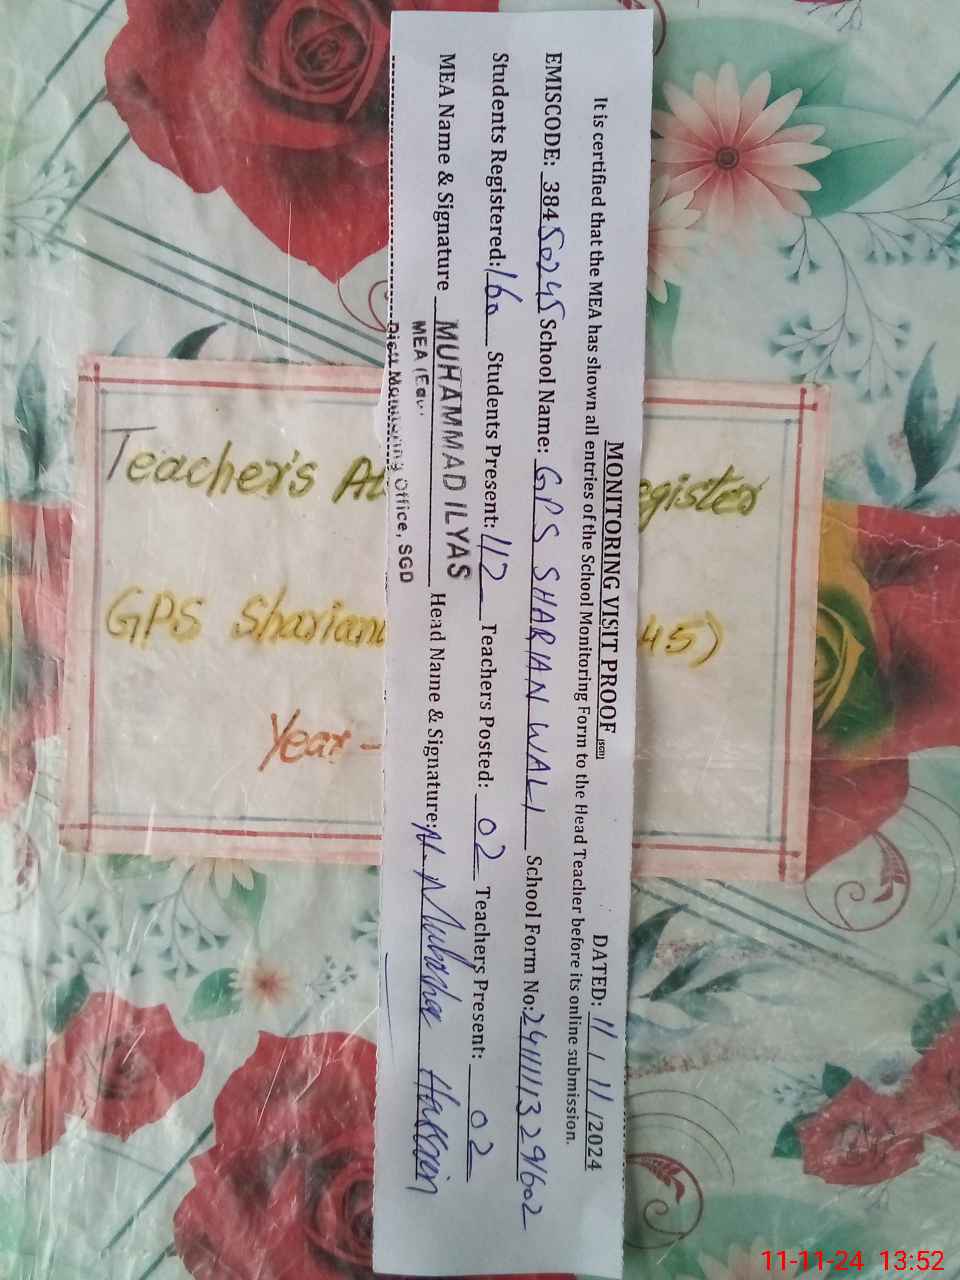 MONITORING VISIT PROOF (SGD)
DATED: 11 / 11 /2024
It is certified that the MEA has shown all entries of the School Monitoring Form to the Head Teacher before its online submission.
EMISCODE: 38450245 School Name: GPS SHARIAN WALI School Form No:
Students Registered: 160 Students Present: 112 Teachers Posted: 02 Teachers Present: 02
MEA Name & Signature MUHAMMAD ILYAS Head Name & Signature: Hussain
MEA
Distt Monitoring Office, SGD
Teacher's
GPS
45)
Year -
11-11-24 13:52